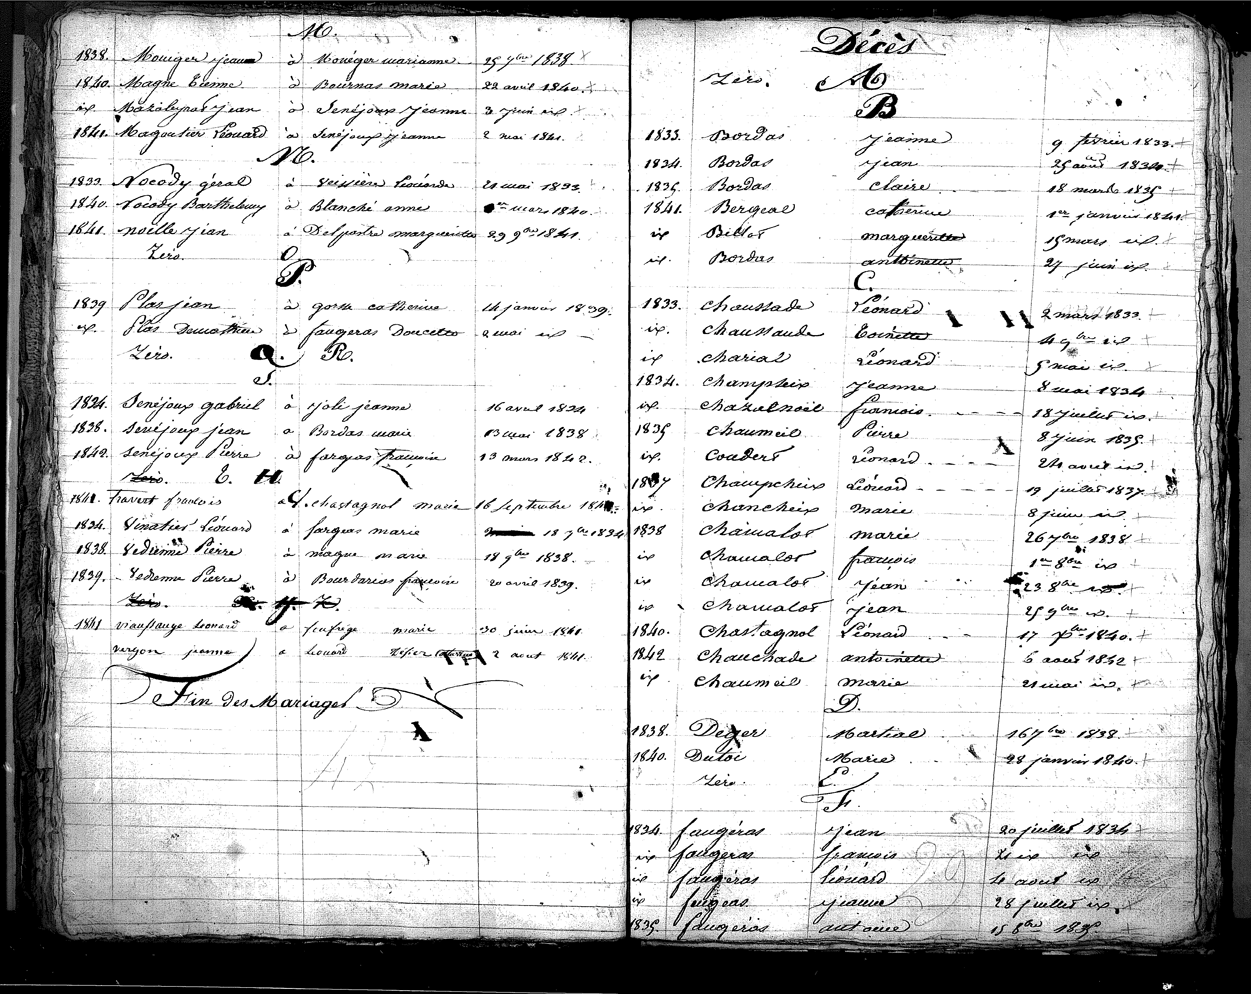 M.
1838. Mouriger Jeanne à Monéger marianne 25 9bre 1838
1840. Magne Etienne à Bournas marie 22 avril 1840.
ix. Mazaleyrat Jean à Senéjoux Jeanne 3 Juin ix
1841. Magoutier Léonard à Senéjoux Jeanne 2 mai 1841.
N.
1833. Nocody géral à Veissière Léonarde 21 mai 1833.
1840. Nocody Barthelemy à Blanché anne mars 1840.
1841. noëlle Jean à Delpastre marguerite 29 9bre 1841.
Zéro. O.
P.
1839 Plas jean à gorse catherine 14 janvier 1839.
ix. Plas à faugeras Doucette 2 mai ix
Zéro. Q. R.
S.
1834. Senéjoux gabriel à Jole jeanne 16 avril 1834
1838. Senéjoux jean à Bordas marie 13 mai 1838
1842. Senéjoux Pierre à fargeas françoise 13 mars 1842.
Zéro. T. H.
1841. Travert francois à chastagnol marie 16 Septembre
1834. Vinatier Léonard à fargeas marie 18 7bre 1834
1838. Vedrenne Pierre à magne marie 18 9bre 1838.
1839. Vedrenne Pierre à Bourdarias françoise 20 avril 1839.
Zéro. Y Z.
1841 viaussange Leonard a feufrege marie 30 juin 1841
vergon jeanne a Leonard 2 aout 1841.
Fin des Mariages
Décès
Zéro. A
B
1833. Bordas Jeanne 9 février 1833.
1834. Bordas Jean 25 aout 1834.
1835. Bordas Claire 18 mars 1835
1841. Bergeal catherine 1er janvier 1841
ix Billot marguerite 15 mars ix.
ix. Bordas antoinette 27 juin ix.
C.
1833. Chaussade Léonard 2 mars 1833.
ix. Chaussaude Toinette 4 9bre ix
ix Charial Léonard 5 mai ix.
1834. Champseix Jeanne 8 mai 1834
ix. Chazalnoël francois. 18 juillet ix.
1835 Chaumeil Pierre 8 juin 1835
ix. Coudert Léonard 24 aout ix.
1837 Champcheix Léonard 19 juillet 1837.
ix. Chancheix marie 8 juin ix
1838 Chamalot marie 26 7bre 1838
ix Chamalot francois 1er 8bre ix
ix Chamalot Jean 23 8bre ix
ix Chamalot Jean 25 9bre ix.
1840. Chastagnol Léonard 17 1840.
1842 Chauchade antoinette 6 août 1842
ix Chaumeil marie 21 mai ix.
D.
1838. Deger Martial 16 7bre 1838.
1840. Dutoi Marie 28 janvier 1840.
Zéro E.
F.
1834. faugéras Jean 20 juillet 1834
ix faugeras francois 21 ix ix
ix faugéras léonard 4 aout ix
ix faugeas Jeanne 28 juillet ix.
1835. faugéras antoine 15 8bre 1835